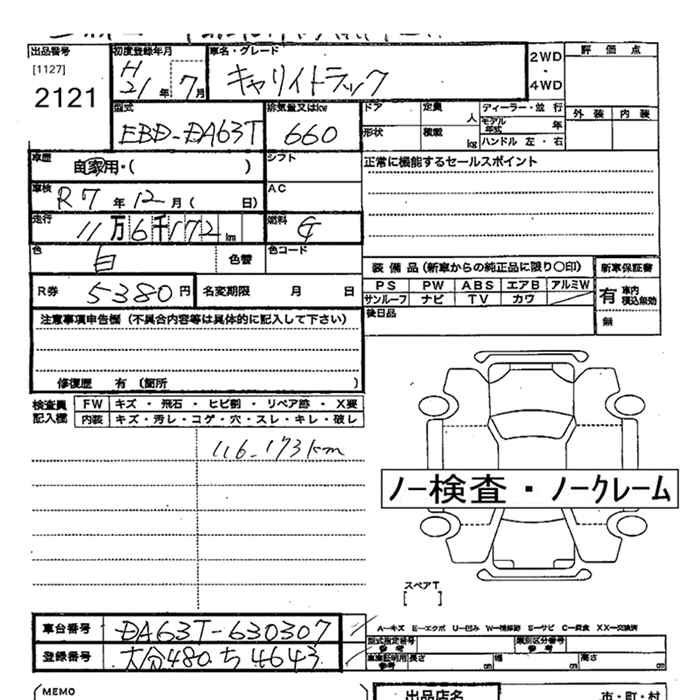 出品番号
[1127]
2121
初度登録年月
H
21年 7月
車名・グレード
キャリイトラック
2WD
・
4WD
評価点
外装 内装
型式
EBD-DA63T
排気量又はkw
660
ドア
定員
人
形状
積載
kg
ディーラー・並行
モデル年式
年
ハンドル 左・右
車歴
自家用・( )
シフト
正常に機能するセールスポイント
車検
R7年 12月( 日)
AC
走行
11万6千172km
燃料
G
色
白
色替
色コード
装備品(新車からの純正品に限り〇印)
新車保証書
PS PW ABS エアB アルミW
サンルーフ ナビ TV カワ
有 車内積込無効
無
R券 5380円
名変期限 月 日
後日品
注意事項申告欄(不具合内容等は具体的に記入して下さい)
修復歴 有(箇所 )
検査員記入欄
FW キズ・飛石・ヒビ割・リペア跡・X要
内装 キズ・汚レ・コゲ・穴・スレ・キレ・破レ
116.173km
ノー検査・ノークレーム
スペアT
[ ]
車台番号 DA63T-630307
A―キズ E―エクボ U―凹み W―補修跡 S―サビ C―腐食 XX―交換済
型式指定番号 参考
類別区分番号 参考
登録番号 大分480ち4643
車庫証明用参考
長さ cm 幅 cm 高さ cm
(MEMO
出品店名
市・町・村